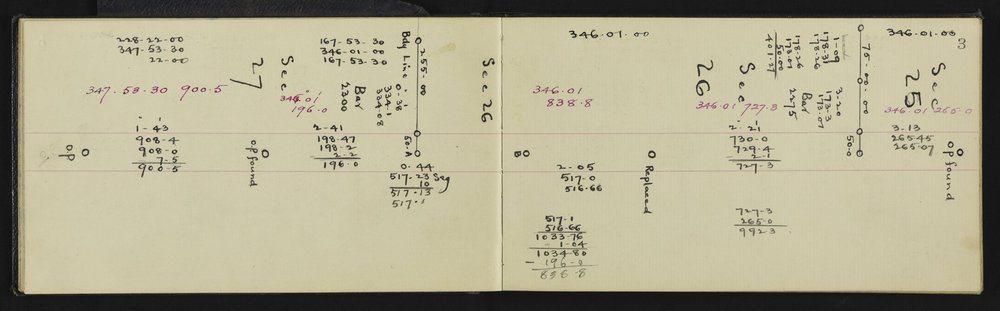 228-22-00
347-53-30
22-00
27
Sec
347.53.30 900.5
1-43
908-4
908-0
7-5
900-5
op
op found
167-53-30
346-01-00
167-53-30
Bdy Line
255.00
0-38
334.1
334-08
Bar
2300
346.01
196.0
2-41
198-47
198-2
2-2
196.0
50-A
0.44
517-23 Seg
10
517-13
517.1
Sec 26
346.01.00
346.01
838.8
B
2-05
517-0
516-66
Replaced
517.1
516.66
1033-76
1-04
1034-80
- 196-0
838-8
26
Sec
346.01 727.3
178-26
173-07
50.00
401-27
1-09
178-31
178-26
3-20
173-3
173-07
Bar
2275
2-21
730-0
729-4
2-1
727-3
727-3
265-0
992-3
75.00.00
50-0
346-01-00
8
Sec
25
346.01 265.0
3-13
265-45
265-07
op found